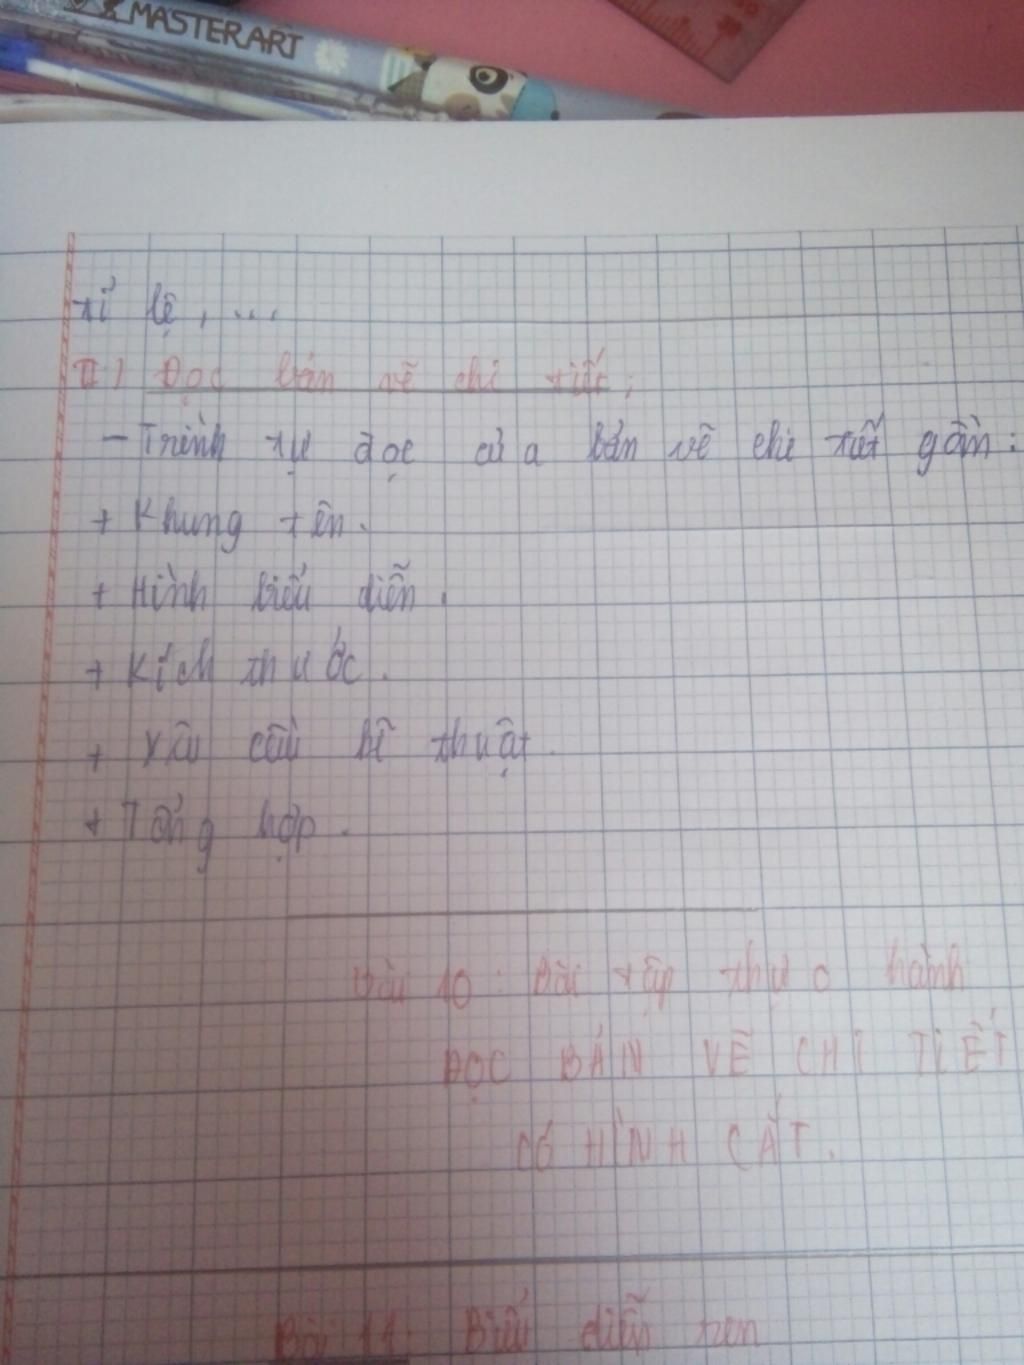 MASTERART
tỉ lệ, ...
II) Đọc bản vẽ chi tiết:
- Trình tự đọc của bản vẽ chi tiết gồm:
+ Khung tên.
+ Hình biểu diễn.
+ Kích thước.
+ Yêu cầu kĩ thuật.
+ Tổng hợp.
Bài 10: Bài tập thực hành
ĐỌC BẢN VẼ CHI TIẾT
CÓ HÌNH CẮT.
Bài 11: Biểu diễn ren